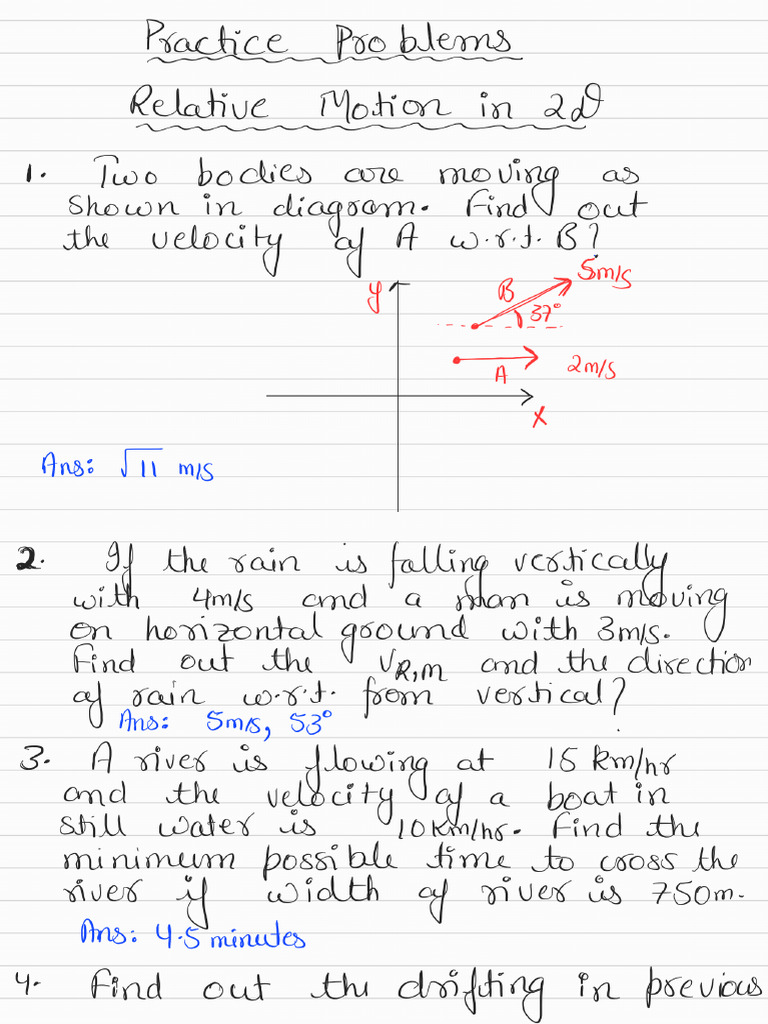 Practice Problems
Relative Motion in 2D
1. Two bodies are moving as
shown in diagram. Find out
the velocity of A w.r.t. B?
y
B
5m/s
37°
A
2m/s
x
Ans: √11 m/s
2. If the rain is falling vertically
with 4m/s and a man is moving
on horizontal ground with 3m/s.
Find out the VR,M and the direction
of rain w.r.t. from vertical?
Ans: 5m/s, 53°
3. A river is flowing at 15 km/hr
and the velocity of a boat in
still water is 10km/hr. Find the
minimum possible time to cross the
river if width of river is 750m.
Ans: 4.5 minutes
4. Find out the drifting in previous